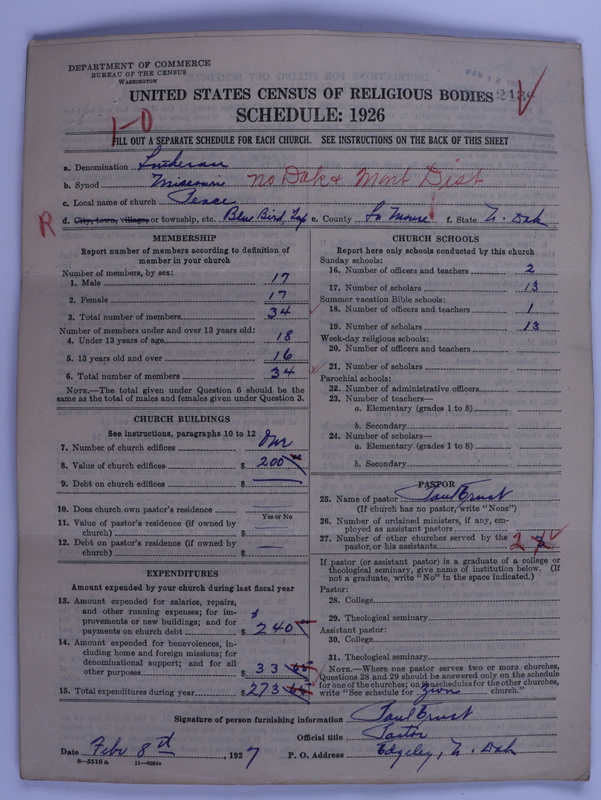 DEPARTMENT OF COMMERCE
BUREAU OF THE CENSUS
WASHINGTON
FEB 12
UNITED STATES CENSUS OF RELIGIOUS BODIES
SCHEDULE: 1926
1-0
FILL OUT A SEPARATE SCHEDULE FOR EACH CHURCH. SEE INSTRUCTIONS ON THE BACK OF THIS SHEET
a. Denomination Lutheran
b. Synod Missouri No Dak & Mont Dist
c. Local name of church Peace
R d. City, town, village, or township, etc. Blue Bird, e. County La Moure f. State N. Dak
MEMBERSHIP
Report number of members according to definition of
member in your church
Number of members, by sex:
1. Male 17
2. Female 17
3. Total number of members 34
Number of members under and over 13 years old:
4. Under 13 years of age 18
5. 13 years old and over 16
6. Total number of members 34
NOTE.—The total given under Question 6 should be the
same as the total of males and females given under Question 3.
CHURCH BUILDINGS
See instructions, paragraphs 10 to 12
7. Number of church edifices One
8. Value of church edifices $ 200
9. Debt on church edifices $
10. Does church own pastor's residence
Yes or No
11. Value of pastor's residence (if owned by
church) $
12. Debt on pastor's residence (if owned by
church) $
EXPENDITURES
Amount expended by your church during last fiscal year
13. Amount expended for salaries, repairs,
and other running expenses; for im-
provements or new buildings; and for
payments on church debt $ 240
14. Amount expended for benevolences, in-
cluding home and foreign missions; for
denominational support; and for all
other purposes $ 33
15. Total expenditures during year $ 273
CHURCH SCHOOLS
Report here only schools conducted by this church
Sunday schools:
16. Number of officers and teachers 2
17. Number of scholars 13
Summer vacation Bible schools:
18. Number of officers and teachers 1
19. Number of scholars 13
Week-day religious schools:
20. Number of officers and teachers
21. Number of scholars
Parochial schools:
22. Number of administrative officers
23. Number of teachers—
a. Elementary (grades 1 to 8)
b. Secondary
24. Number of scholars—
a. Elementary (grades 1 to 8)
b. Secondary
PASTOR
25. Name of pastor Paul Ernst
(If church has no pastor, write "None")
26. Number of ordained ministers, if any, em-
ployed as assistant pastors
27. Number of other churches served by the
pastor, or his assistants 2
If pastor (or assistant pastor) is a graduate of a college or
theological seminary, give name of institution below. (If
not a graduate, write "No" in the space indicated.)
Pastor:
28. College
29. Theological seminary
Assistant pastor:
30. College
31. Theological seminary
NOTE.—Where one pastor serves two or more churches,
Questions 28 and 29 should be answered only on the schedule
for one of the churches; on the schedules for the other churches,
write "See schedule for Zion church."
Signature of person furnishing information Paul Ernst
Official title Pastor
Date Febr 8th, 1927 P. O. Address Edgeley, N. Dak
8-5518a 11-9024